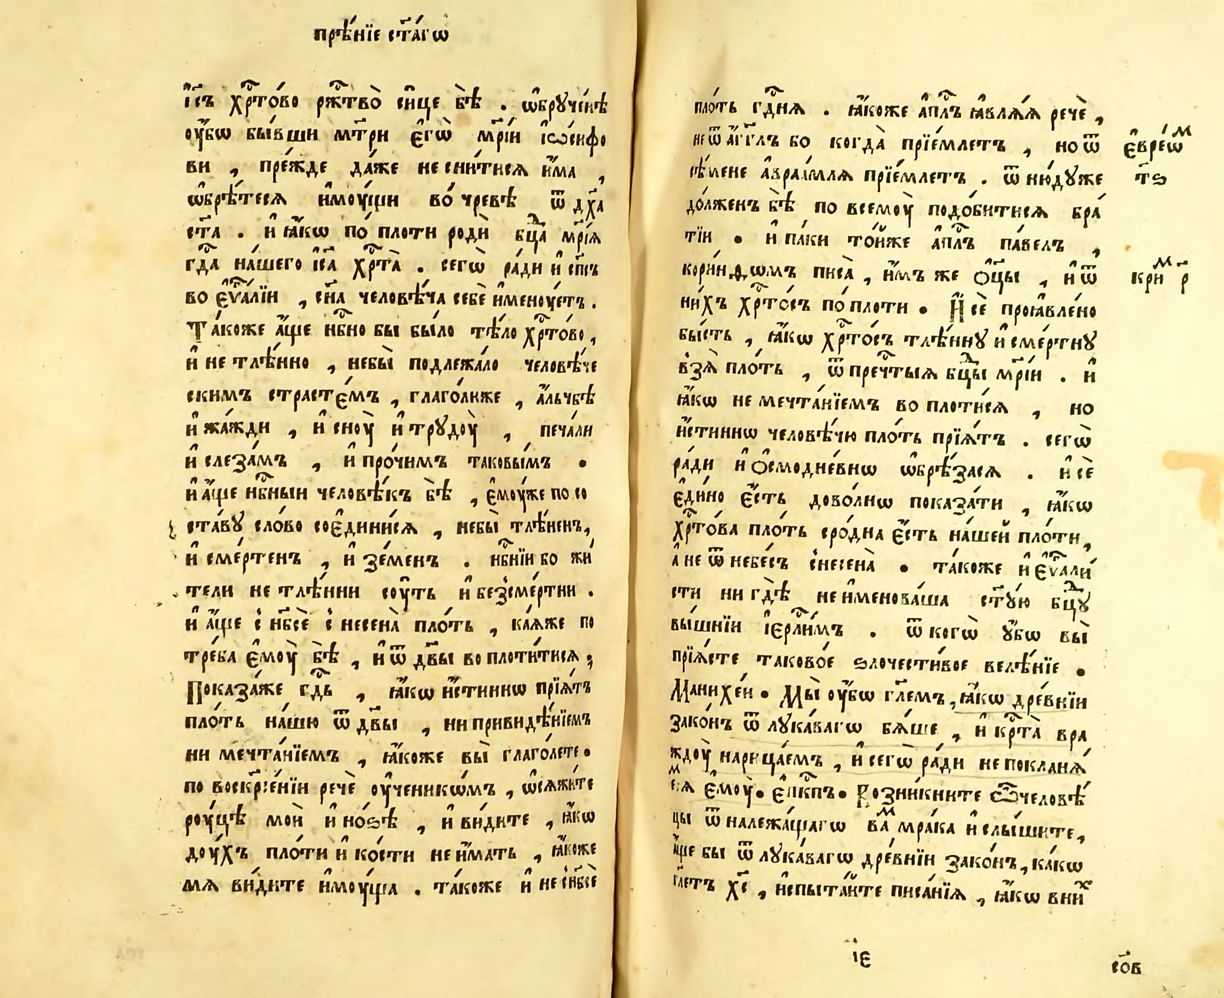 прѣ́нїе ст҃а́гѡ
і҆и҃съ хрⷭ҇то́во ржⷭ҇тво̀ си́це бѣ̀ . ѡ҆бруче́нѣ
ᲂу҆́бѡ бы́вши мт҃ри є҆гѡ̀ мр҃і́и і҆ѡ́сифо
ви , пре́жде да́же не сни́тисѧ и҆́ма ,
ѡ҆брѣ́тесѧ и҆мꙋ́щи во́ чревѣ ѿ дх҃а
ст҃а . и҆ ꙗ҆́кѡ по́ плоти родѝ бцⷣа мр҃і́ѧ
гдⷭ҇а на́шего і҆и҃са хрⷭ҇та̀ . сегѡ̀ ра́ди и҆ сп҃съ
во є҆ѵⷢ҇а́лїи , сн҃а человѣ́ча себѐ и҆менꙋ́етъ .
Та́коже а҆́ще нбⷭ҇но бы бы́ло тѣ́ло хрⷭ҇то́во ,
и҆ не тлѣ́нно , небы̀ подлежа́ло человѣ́че
скимъ страсте́мъ , глаго́лиже , а҆́лъчбѣ
и҆ жа́жди , и҆ снꙋ̀ и҆ трꙋдꙋ̀ , печа́ли
и҆ слеза́мъ , и҆ про́чимъ таковы́мъ .
и҆ а҆́ще нбⷭ҇ныи человѣ́къ бѣ̀ , є҆мꙋ́же по со
ста́вꙋ сло́во соє҆дини́сѧ , небы̀ тлѣ́ненъ ,
и҆ сме́ртенъ , и҆ зе́менъ . нбⷭ҇нїи бо жи́
тели не тлѣ́нни сꙋ́ть и҆ безсме́ртни .
и҆ а҆́ще с нб҃сѐ с несена̀ пло́ть , ка́ѧже по
тре́ба є҆мꙋ̀ бѣ̀ , и҆ ѿ дв҃ы во плоти́тисѧ ;
Показа́же гдⷭ҇ь , ꙗ҆́кѡ и҆́стиннѡ прїѧ́тъ
пло́ть на́шю ѿ дв҃ы , ни привидѣ́нїемъ
ни мечта́нїемъ , ꙗ҆́коже вы̀ глаго́лете .
по воскр҃се́нїи речѐ ᲂу҆ченикѡ́мъ , ѡ҆сѧжи́те
рꙋ́цѣ мои̑ и҆ но́ѕѣ , и҆ ви́дите , ꙗ҆́кѡ
дꙋ́хъ пло́ти и҆ ко́сти не и҆́мать , ꙗ҆́коже
мѧ ви́дите и҆мꙋ́ща . та́коже и҆ не с нб҃сѐ
пло́ть гдⷭ҇нѧ . ꙗ҆́коже а҆пⷭ҇лъ ꙗ҆влѧ́ѧ речѐ ,
не ѿ а҆́гг҃лъ бо когда̀ прїе́млетъ , но ѿ
сѣ́мене а҆враа́млѧ прїе́млетъ . ѿ ню́дꙋже
до́лженъ бѣ̀ по всемꙋ̀ подо́битисѧ бра́
тїи . и҆ па́ки то́йже а҆пⷭ҇лъ па́велъ ,
кори́нѳѡмъ писа̀ , и҆́мъ же ѻ҆ц҃ы̀ , и҆ ѿ
ни́хъ хрⷭ҇то́съ по́ плоти . И҆ сѐ проꙗ҆вле́но
бы́сть , ꙗ҆́кѡ хрⷭ҇то́съ тлѣ́ннꙋ и҆ сме́ртнꙋ
взѧ̀ пло́ть , ѿ пречⷭ҇тыѧ бцⷣы мр҃і́и . и҆
ꙗ҆́кѡ не мечта́нїемъ во плоти́сѧ , но
и҆́стиннѡ человѣ́чю пло́ть прїѧ́тъ . сегѡ̀
ра́ди и҆ ѻ҆смодне́внѡ ѡ҆брѣ́засѧ . и҆ сѐ
є҆ди́но є҆́сть дово́лнѡ показа́ти , ꙗ҆́кѡ
хрⷭ҇то́ва пло́ть сро́дна є҆́сть на́шей пло́ти ,
а҆ не ѿ небе́съ снесена̀ . та́коже и҆ є҆ѵⷢ҇али́
сти ни гдѣ̀ не именова́ша ст҃ꙋ́ю бцⷣꙋ
вы́шнїи і҆ерⷭ҇ли́мъ . ѿ когѡ̀ ᲂу҆́бѡ вы̀
прїѧ́сте таково́е ѕлочести́вое велѣ́нїе .
Манихе́и . Мы̀ ᲂу҆́бѡ гл҃емъ , ꙗ҆́кѡ дре́внїи
зако́нъ ѿ лꙋка́вагѡ бѧ́ше , и҆ крⷭ҇та̀ вра
ждꙋ̀ нарица́емъ , и҆ сегѡ̀ ра́ди не покланѧ́
ⷨсѧ є҆мꙋ̀ . Є҆пⷭ҇кпъ . Возникни́те ѽ человѣ́
цы ѿ належа́щагѡ ваⷨ мра́ка и҆ слы́шите ,
а҆́ще бы ѿ лꙋка́вагѡ дре́внїи зако́нъ , ка́кѡ
гл҃етъ хс҃ , и҆спыта́йте писа́нїѧ , ꙗ҆́кѡ вниⷯ
є҆вре́ѡⷨ
т҃ѕ
криⷨ р҃
і҃е
со́в